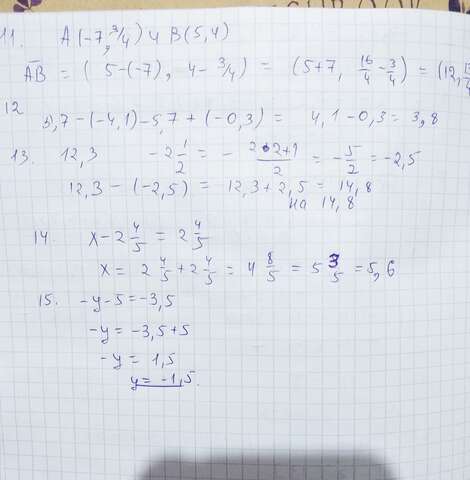 11. A(-7, 3/4) и B(5, 4)
AB = ( 5-(-7), 4- 3/4) = (5+7, 16/4 - 3/4) = (12,
12 5,7 - (-4,1) - 5,7 + (-0,3) = 4,1 - 0,3 = 3,8
13. 12,3 -2 1/2 = - 2•2+1/2 = - 5/2 = -2,5
12,3 - (-2,5) = 12,3 + 2,5 = 14,8
на 14,8
14 x - 2 4/5 = 2 4/5
x = 2 4/5 + 2 4/5 = 4 8/5 = 5 3/5 = 5,6
15. -y-5 = -3,5
-y = -3,5+5
-y = 1,5
y = -1,5.